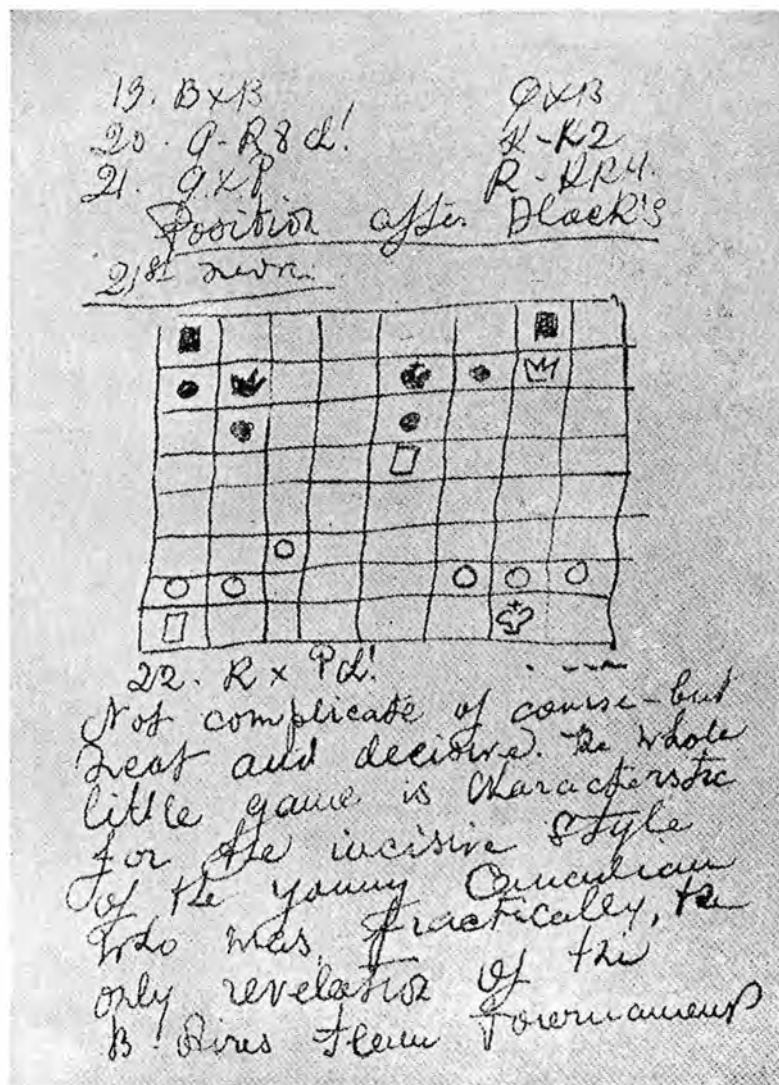 19. B×B Q×B
20. Q-R8 ch! K-K2
21. Q×P R-KR4.
Position after Black's
21st move.
22. R × P ch! . ---
Not complicate of course - but
neat and decisive. The whole
little game is characteristic
for the incisive style
of the young Canadian
who was, practically, the
only revelation of the
B. Aires Team Tournament